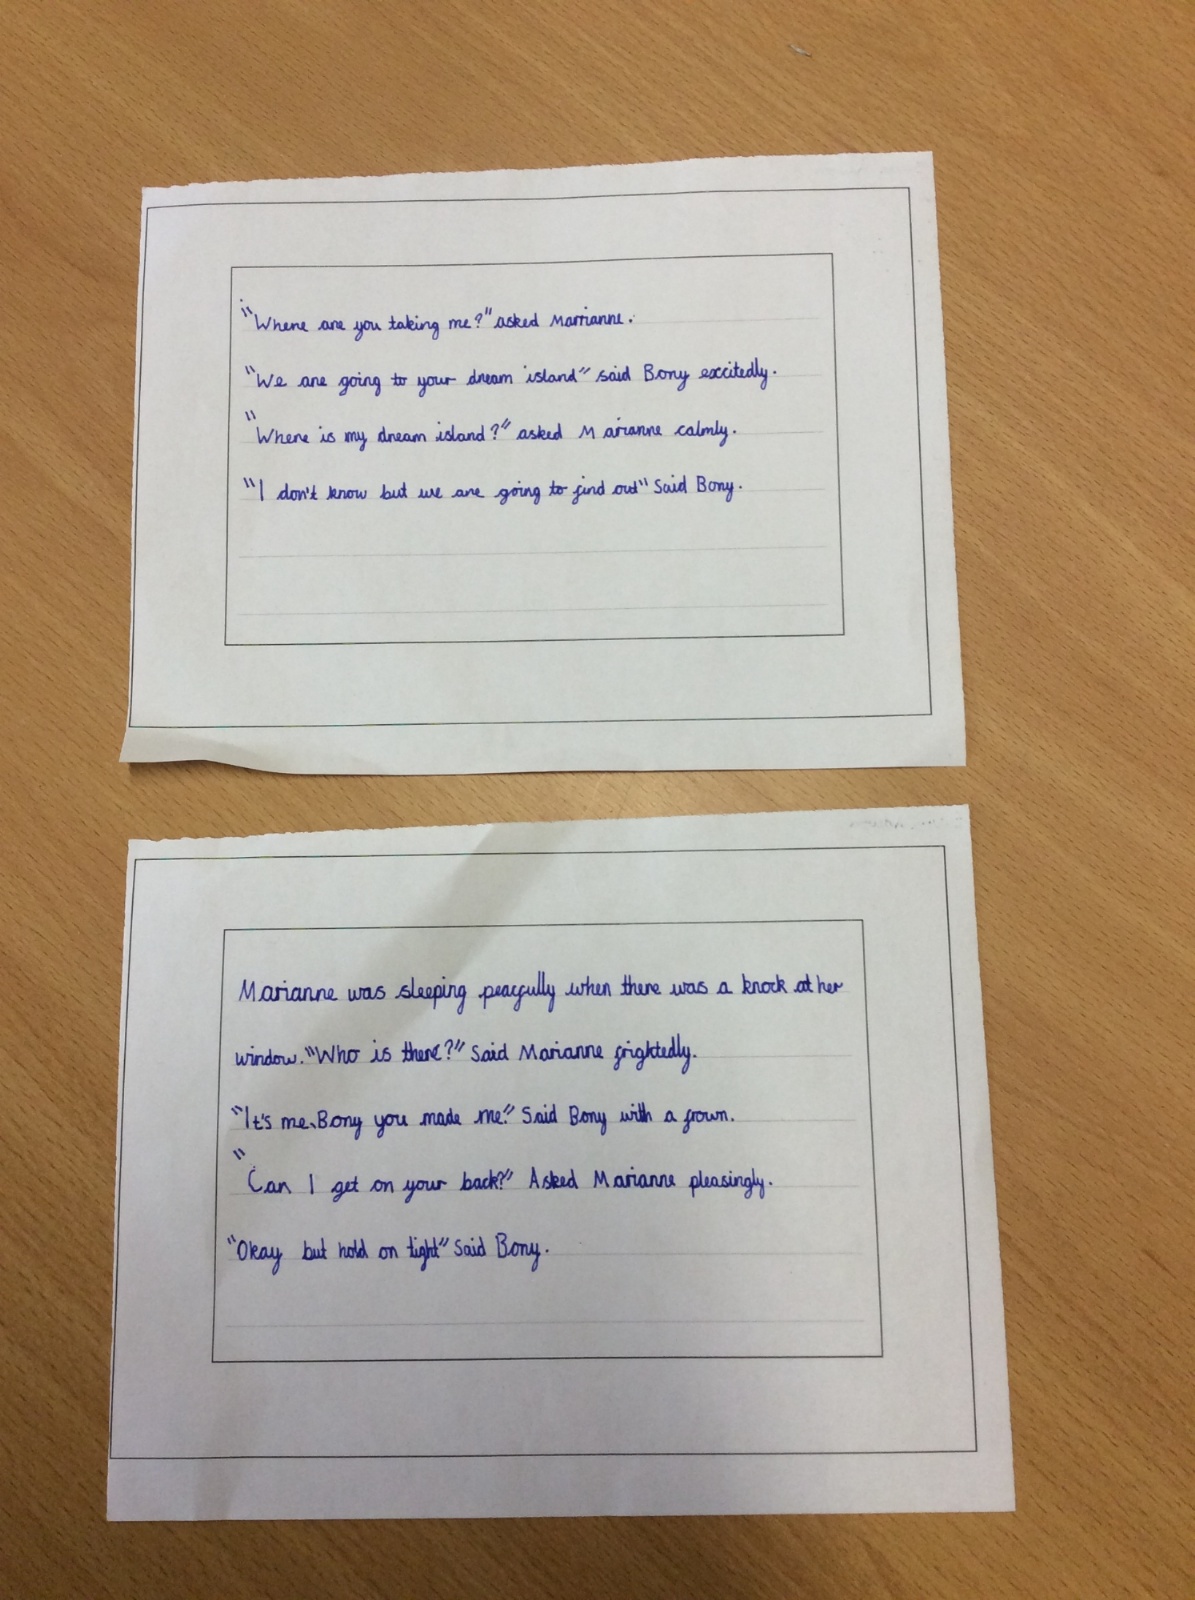 "Where are you taking me?" asked Marrianne.
"We are going to your dream island" said Bony excitedly.
"Where is my dream island?" asked Marianne calmly.
"I don't know but we are going to find out" Said Bony.
Marianne was sleeping peacfully when there was a knock at her
window. "Who is there?" Said Marianne frightedly.
"It's me, Bony you made me." Said Bony with a frown.
"Can I get on your back?" Asked Marianne pleasingly.
"Okay but hold on tight" Said Bony.